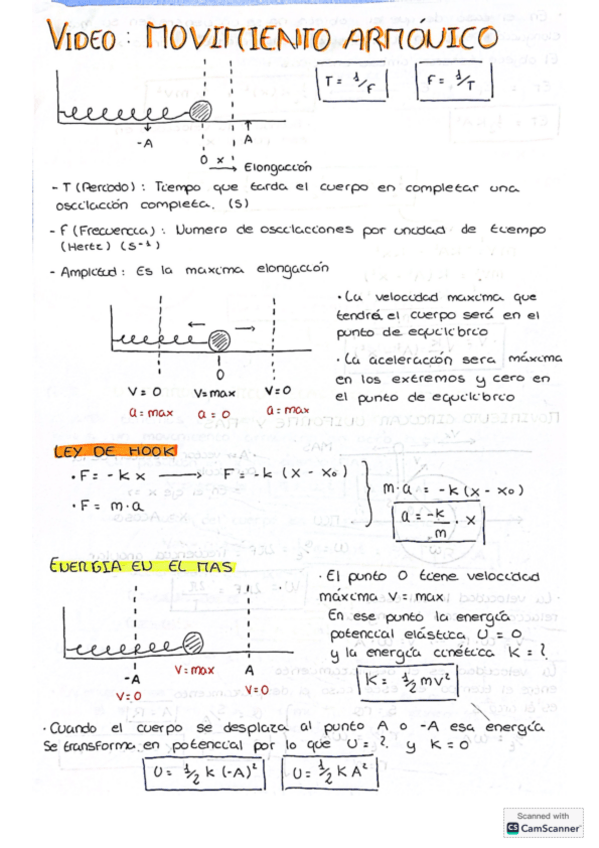 VIDEO: MOVIMIENTO ARMÓNICO
T = 1/F
F = 1/T
-A
A
O x
Elongación
- T (Periodo): Tiempo que tarda el cuerpo en completar una
oscilación completa. (S)
- f (Frecuencia): Numero de oscilaciones por unidad de tiempo
(Hertz) (S⁻¹)
- Amplitud: Es la maxima elongación
· La velocidad maxima que
tendrá el cuerpo será en el
punto de equilibrio
· La aceleración sera máxima
en los extremos y cero en
el punto de equilibrio
O
V=0 V=max V=0
a=max a=0 a=max
LEY DE HOOK
· F = -k x → F = -k (x - x₀)
· F = m·a
m·a = -k(x - x₀)
a = -k/m · x
ENERGIA EN EL MAS
· El punto O tiene velocidad
máxima V = max
En ese punto la energía
potencial elástica U = 0
y la energía cinética K = ?
K = 1/2 mv²
-A V=max A
V=0 V=0
· Cuando el cuerpo se desplaza al punto A o -A esa energía
se transforma en potencial por lo que U = ? y K = 0
U = 1/2 k (-A)²
U = 1/2 K A²
Scanned with
CS CamScanner